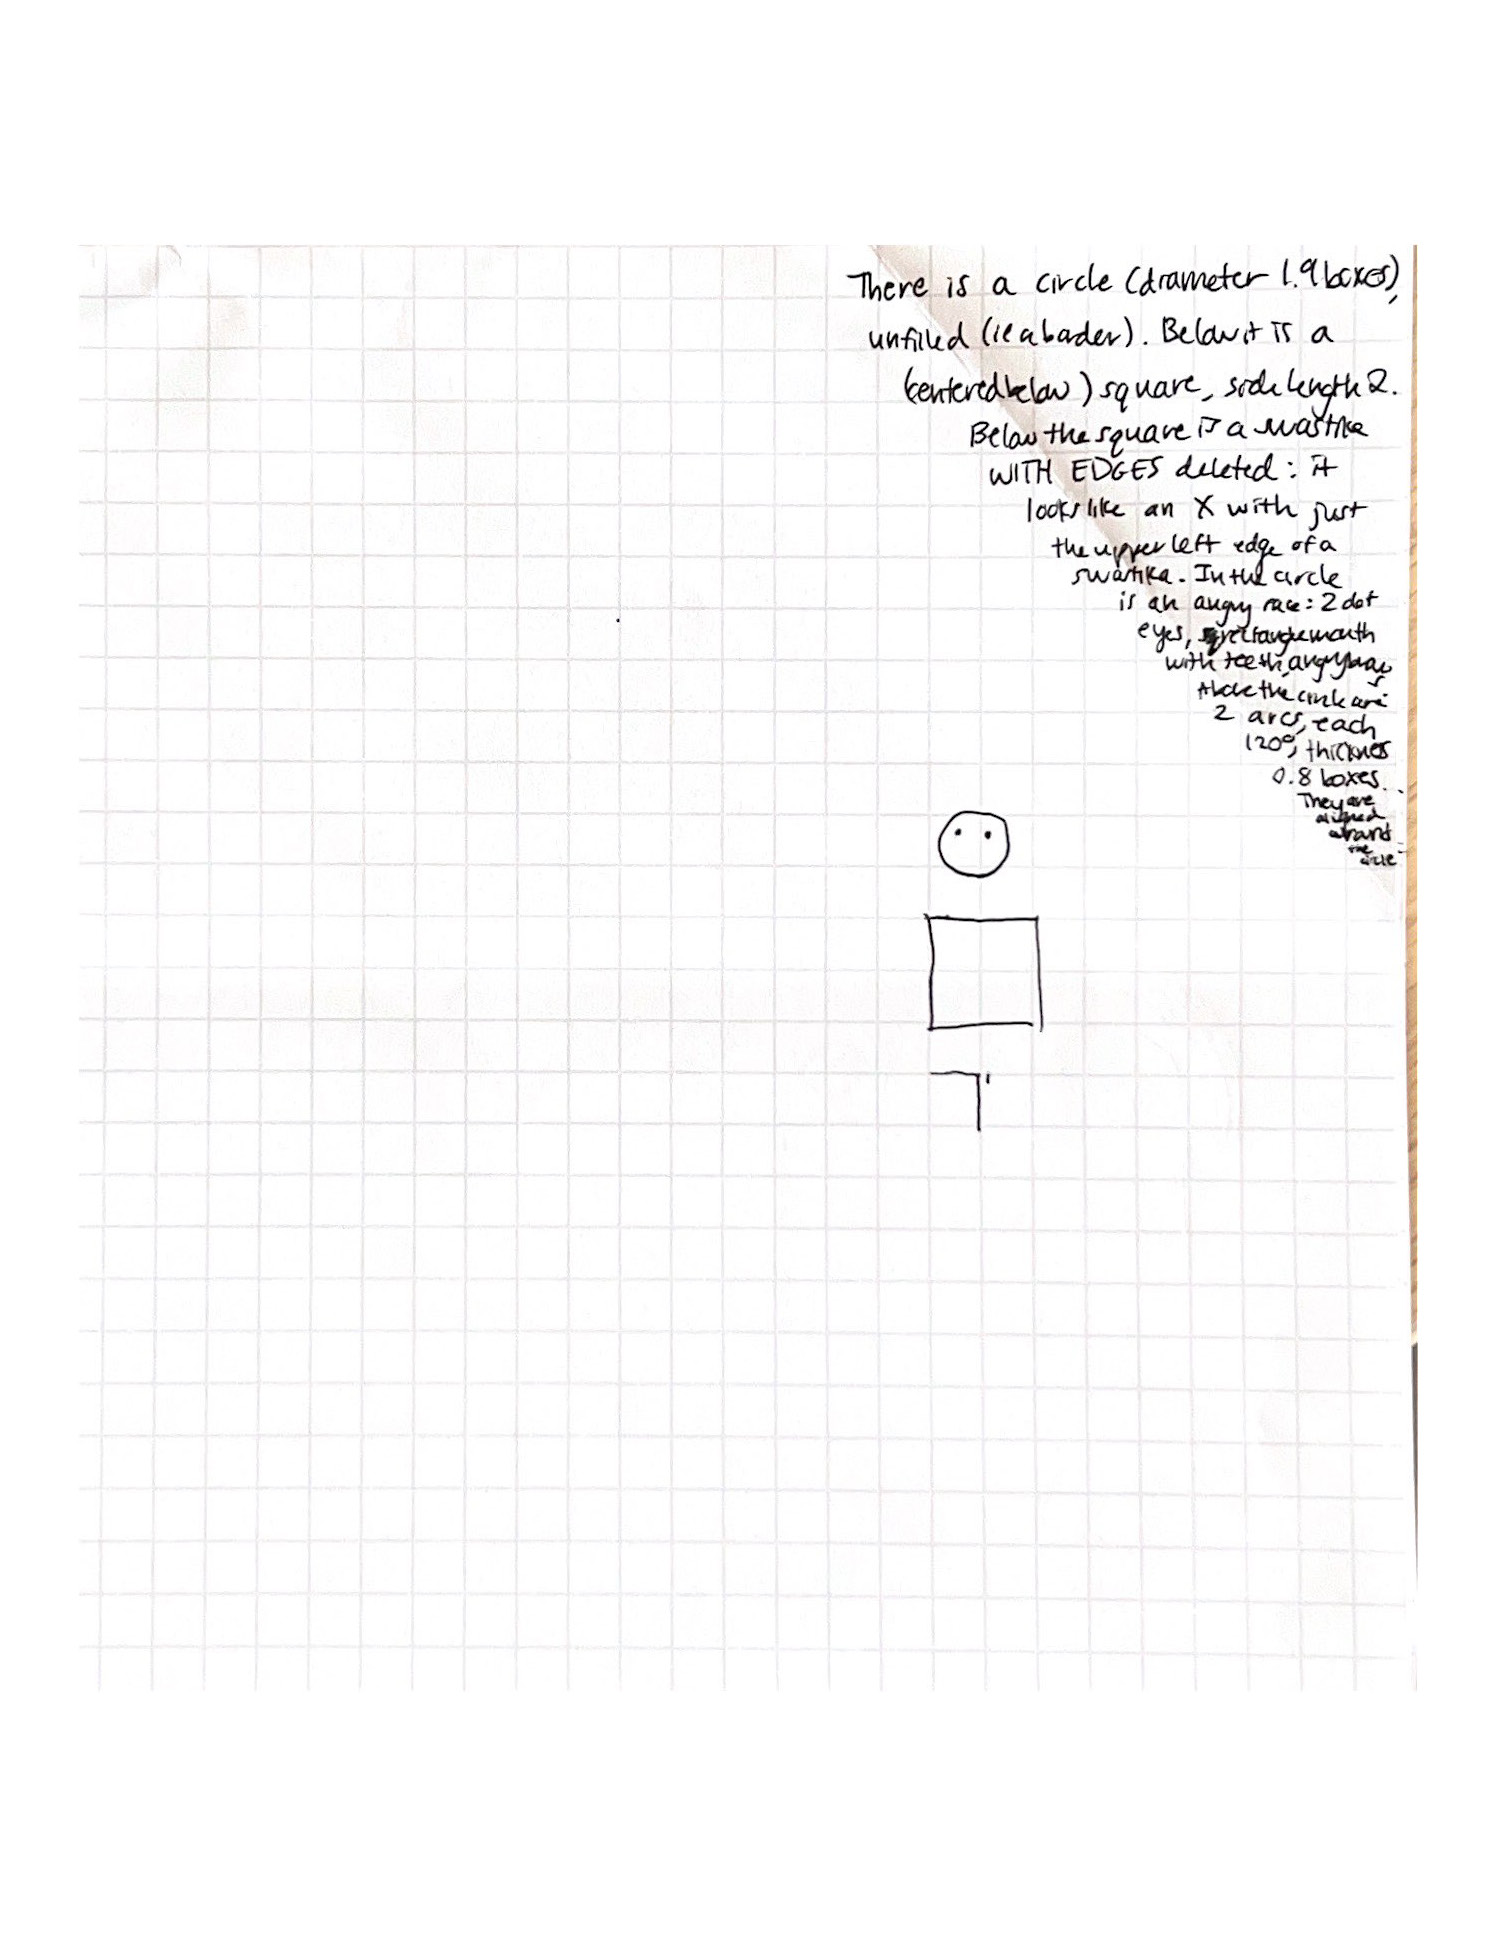 There is a circle (diameter 1.9 boxes),
unfilled (ie a border). Below it is a
(centered below) square, side length 2.
Below the square is a swastika
WITH EDGES deleted: it
looks like an X with just
the upper left edge of a
swastika. In the circle
is an angry face: 2 dot
eyes, rectangle mouth
with teeth, angry
Above the circle are
2 arcs, each
120°, thickness
0.8 boxes.
They are
aligned
around
the
circle